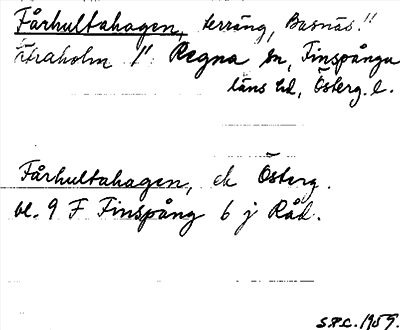 Fårhultahagen, terräng, Basnäs!!
Regna sn, Finspånga
läns hd, Österg. l.
Fårhultahagen, ek Österg.
bl. 9 F Finspång 6 j Råd.
S.P.C. 1959.